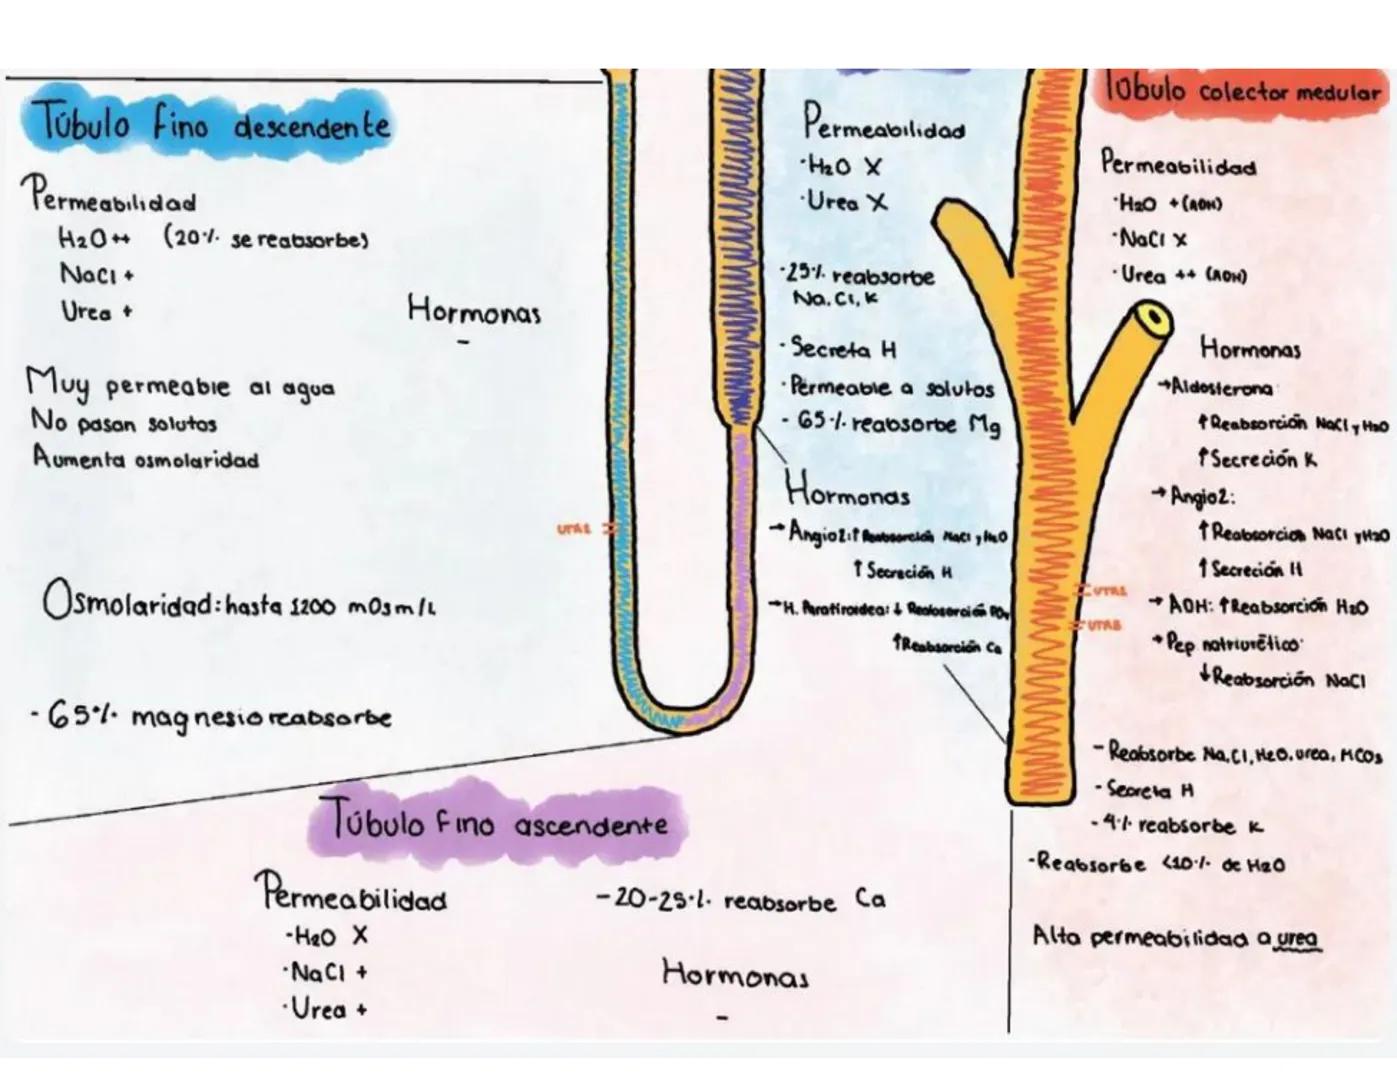 Túbulo fino descendente
Permeabilidad
H₂O++ (20% se reabsorbe)
NaCl +
Urea +
Hormonas
-
Muy permeable al agua
No pasan solutos
Aumenta osmolaridad
Osmolaridad: hasta 1200 mOsm/L
- 65% magnesio reabsorbe
Túbulo fino ascendente
Permeabilidad
·H₂O X
·NaCl +
·Urea +
- 20-25% reabsorbe Ca
Hormonas
-
Permeabilidad
·H₂O X
·Urea X
·25% reabsorbe
Na, Cl, K
·Secreta H
·Permeable a solutos
- 65% reabsorbe Mg
Hormonas
→Angio2: ↑Reabsorción NaCl y H₂O
↑ Secreción H
→H. Paratiroidea: ↓ Reabsorción PO₄
↑Reabsorción Ca
Túbulo colector medular
Permeabilidad
·H₂O +(ADH)
·NaCl X
·Urea ++ (ADH)
Hormonas
→Aldosterona
↑Reabsorción NaCl y H₂O
↑Secreción K
→Angio2:
↑Reabsorcion NaCl y H₂O
↑ Secreción H
→ ADH: ↑Reabsorción H₂O
→Pep natriurético:
↓Reabsorción NaCl
- Reabsorbe Na, Cl, H₂O, urea, HCO₃
- Secreta H
- 4% reabsorbe K
-Reabsorbe <10% de H₂O
Alta permeabilidad a urea